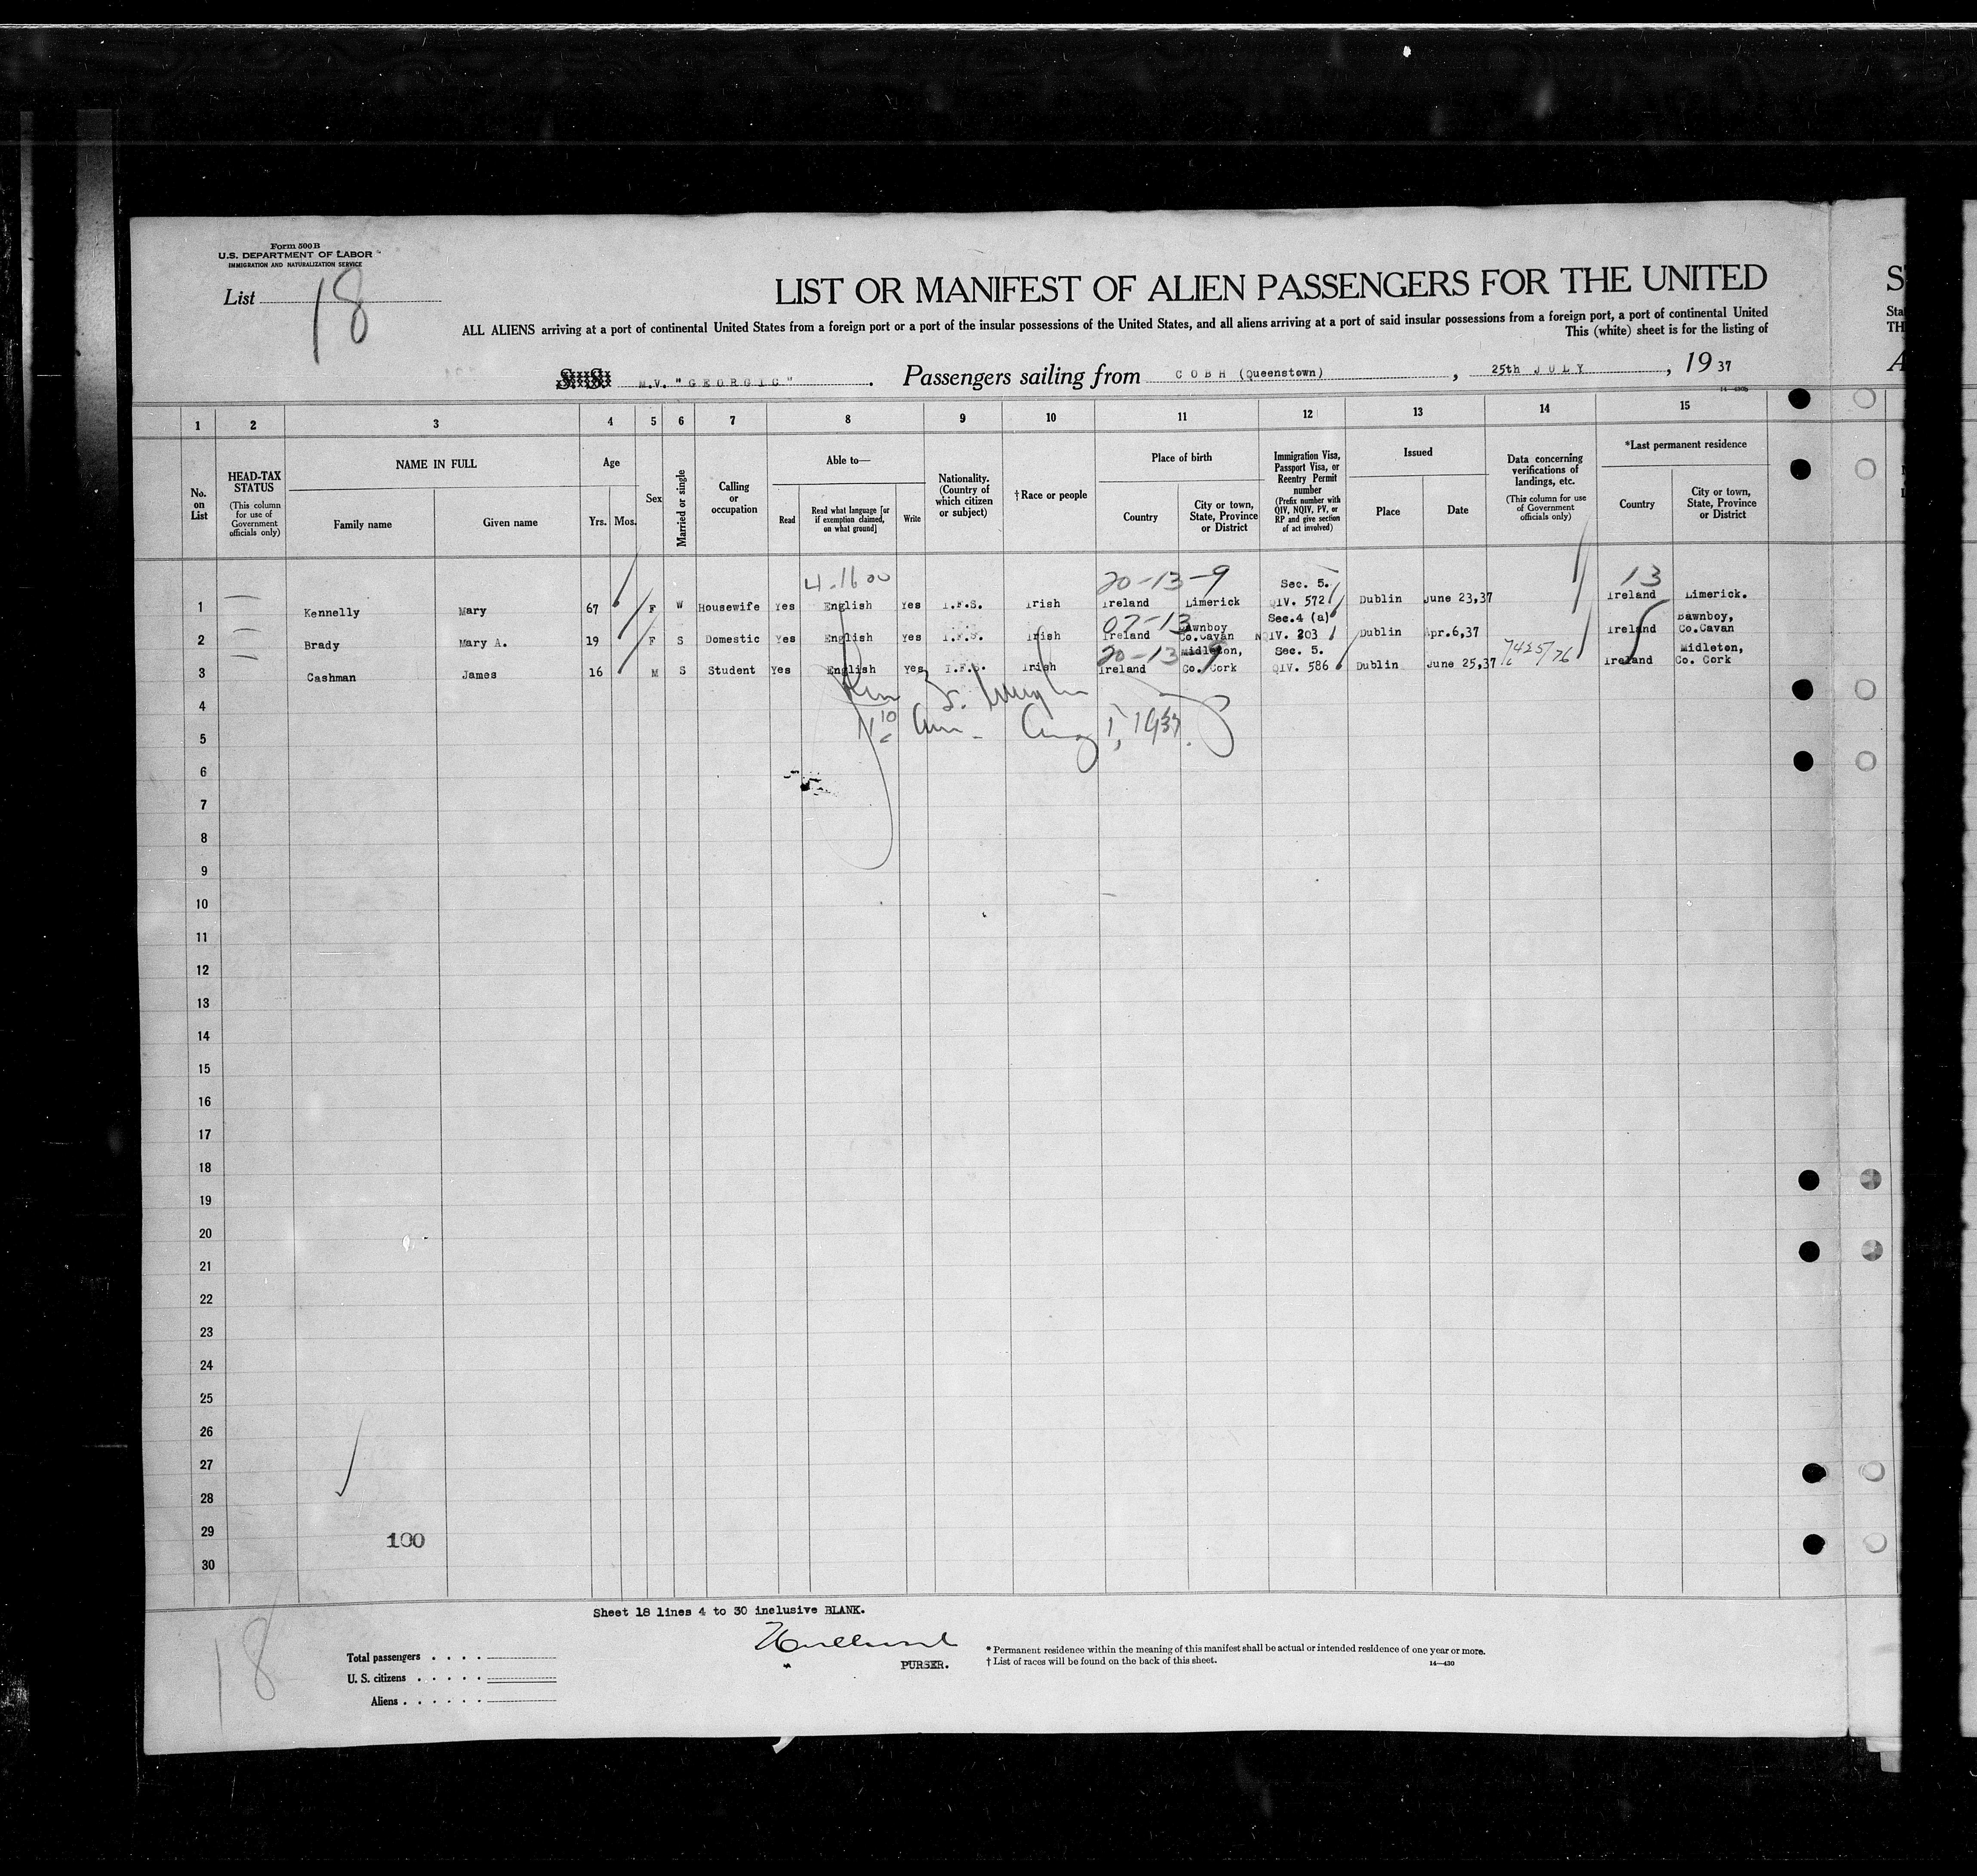 Form 500 B
U.S. DEPARTMENT OF LABOR
IMMIGRATION AND NATURALIZATION SERVICE
List 18
LIST OR MANIFEST OF ALIEN PASSENGERS FOR THE UNITED
ALL ALIENS arriving at a port of continental United States from a foreign port or a port of the insular possessions of the United States, and all aliens arriving at a port of said insular possessions from a foreign port, a port of continental United
This (white) sheet is for the listing of
S. S. M.V. "GEORGIC". Passengers sailing from COBH (Queenstown), 25th JULY, 1937
1 2 3 4 5 6 7 8 9 10 11 12 13 14 15
No. on List
HEAD-TAX STATUS (This column for use of Government officials only)
NAME IN FULL
Family name Given name
Age
Yrs. Mos.
Sex
Married or single
Calling or occupation
Able to—
Read
Read what language [or if exemption claimed, on what ground]
Write
Nationality. (Country of which citizen or subject)
†Race or people
Place of birth
Country
City or town, State, Province or District
Immigration Visa, Passport Visa, or Reentry Permit number (Prefix number with QIV, NQIV, PV, or RP and give section of act involved)
Issued
Place Date
Data concerning verifications of landings, etc. (This column for use of Government officials only)
*Last permanent residence
Country
City or town, State, Province or District
4-1600 20-13-9 Sec. 5. 13
1 Kennelly Mary 67 F W Housewife Yes English Yes I.F.S. Irish Ireland Limerick QIV. 572 Dublin June 23,37 Ireland Limerick.
07-13 Bawnboy Sec.4 (a) Bawnboy,
2 Brady Mary A. 19 F S Domestic Yes English Yes I.F.S. Irish Ireland Co.Cavan NQIV. 203 Dublin Apr.6,37 Ireland Co.Cavan
20-13 9 Midleton, Sec. 5. Midleton,
3 Cashman James 16 M S Student Yes English Yes I.F.S. Irish Ireland Co. Cork QIV. 586 Dublin June 25,37 Ireland Co. Cork
4
5
6
7
8
9
10
11
12
13
14
15
16
17
18
19
20
21
22
23
24
25
26
27
28
29 100
30
Sheet 18 lines 4 to 30 inelusive BLANK.
18
PURSER.
Total passengers
U. S. citizens
Aliens
* Permanent residence within the meaning of this manifest shall be actual or intended residence of one year or more.
† List of races will be found on the back of this sheet.
14—430